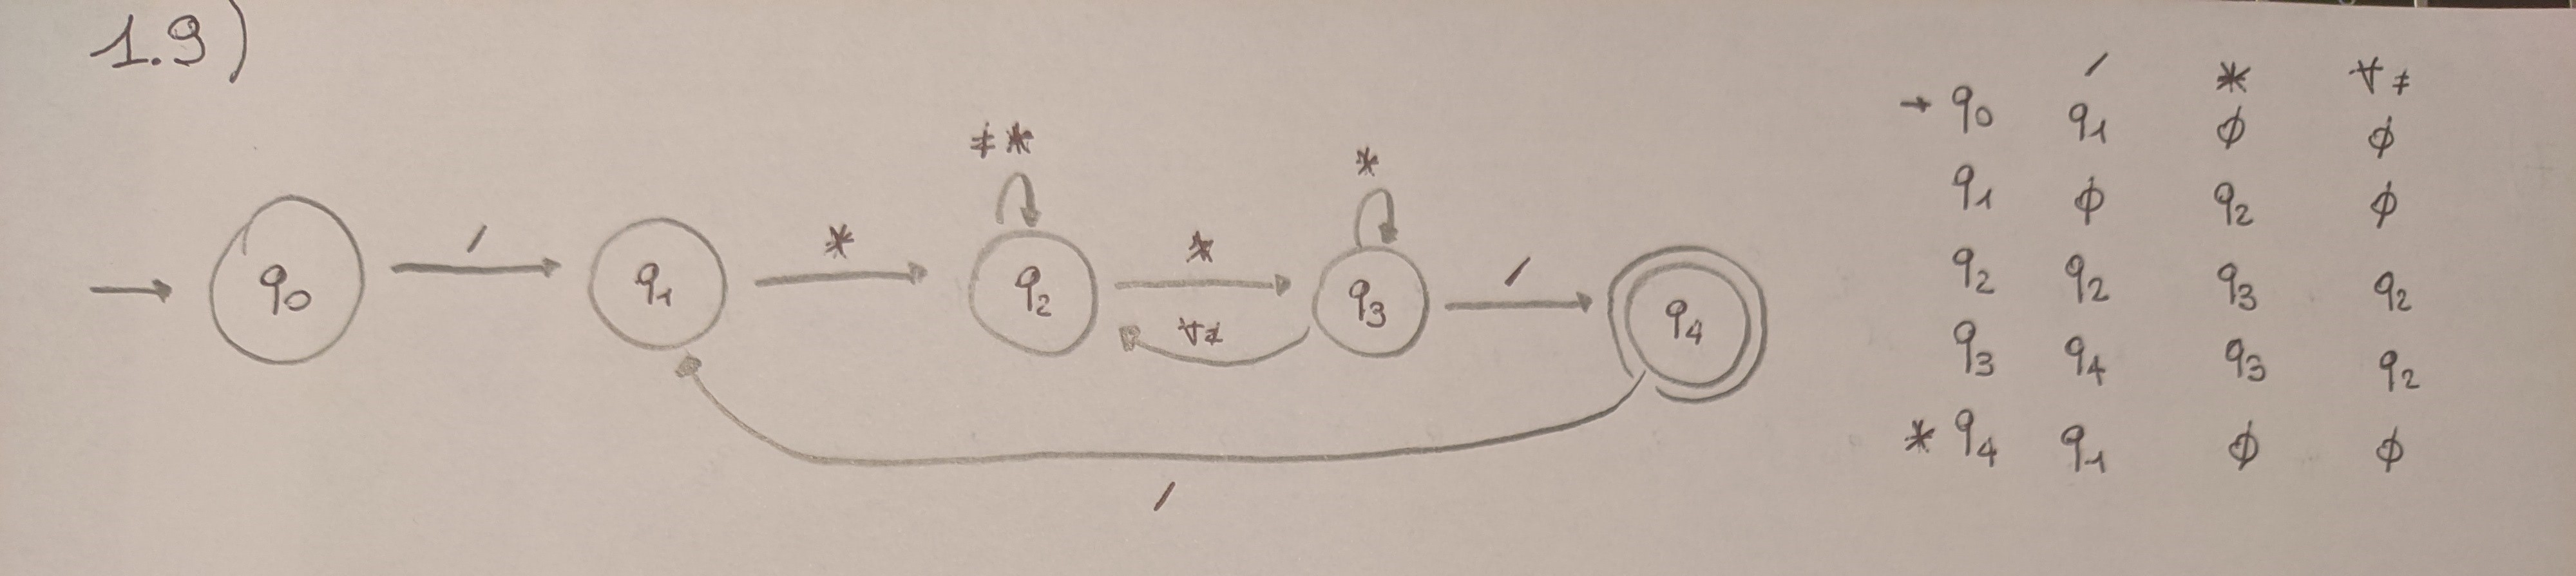 1.9)
→ q0 / q1 * q2 * q3 / q4
≠ *
*
∀≠
/
/ * ∀ ≠
→ q0 q1 ϕ ϕ
q1 ϕ q2 ϕ
q2 q2 q3 q2
q3 q4 q3 q2
* q4 q1 ϕ ϕ